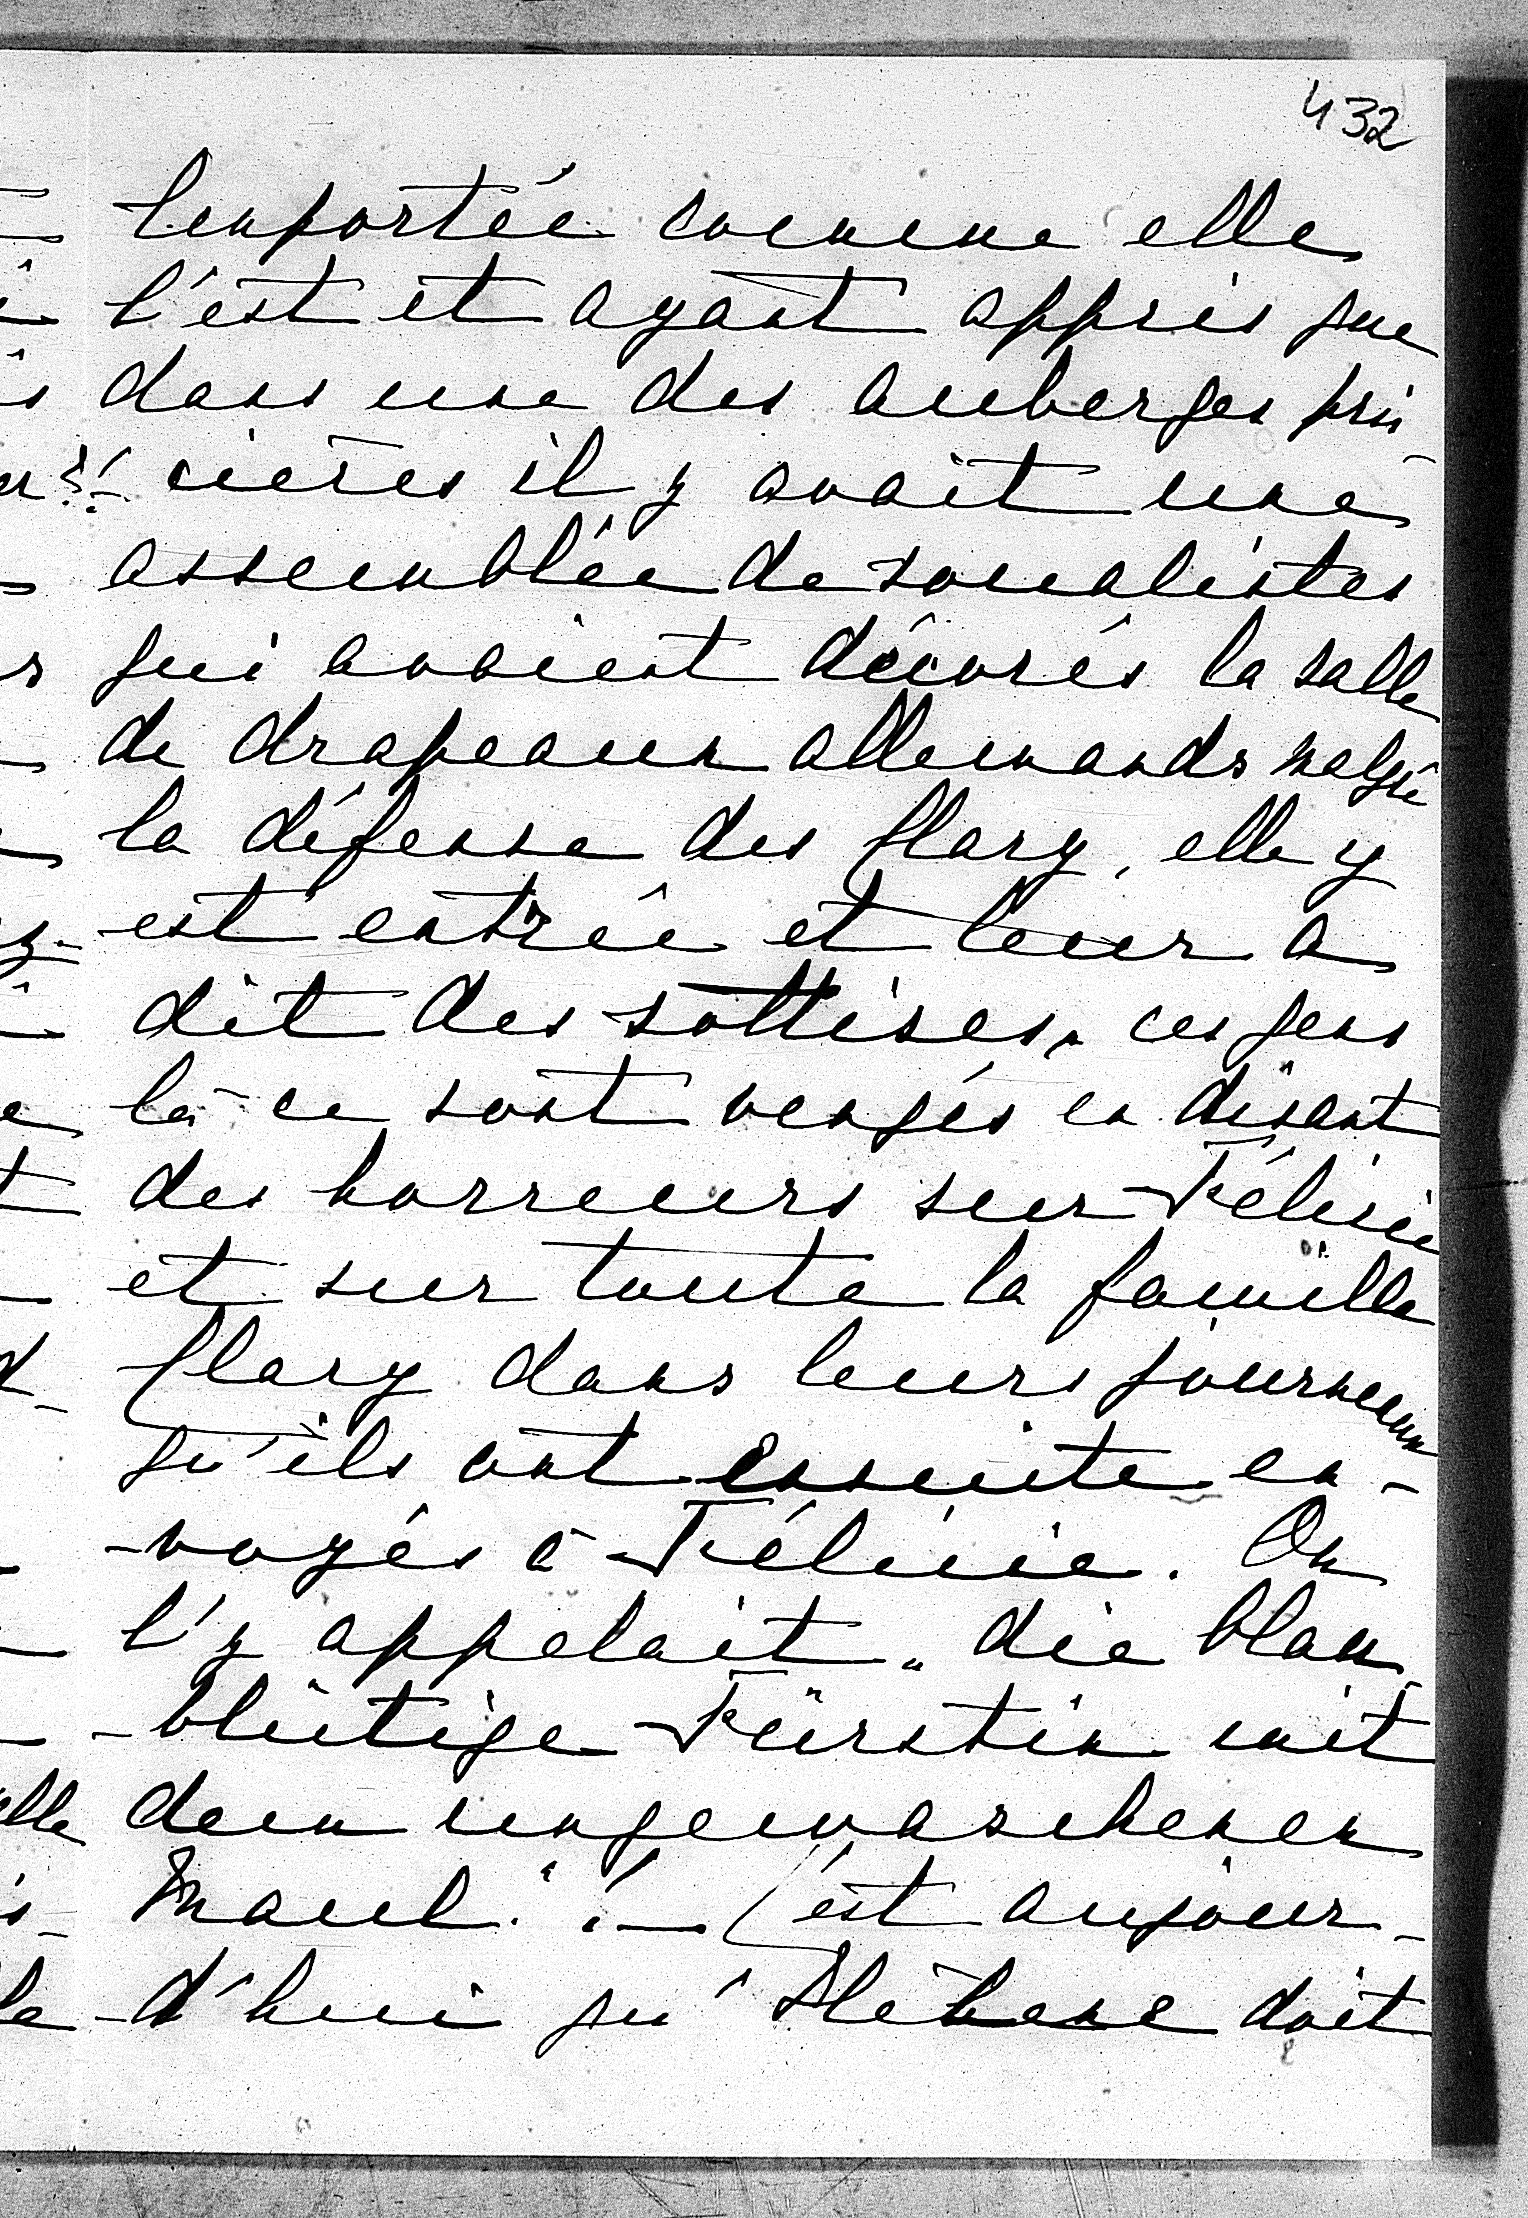 432
l'emportée comme elle
l'est et ayant appris que
dans une des auberges prin
cières il y avait une
assemblée de socialistes
qui avaient décorés la salle
de drapeaux allemands malgré
la défense des Clary, elle y
est entrée et leur a
dit des sottises, ces gens
là ce sont vengés en disant
des horreurs sur Félicie
et sur toute la famille
Clary dans leurs journeaux
qu'ils ont ensuite en-
-voyés à Félicie. On
l'y appelait „die blau
-blütige Fürstin mit
dem ungewaschenen
Maul"!— C'est aujour-
-d'hui qu'Hélène doit